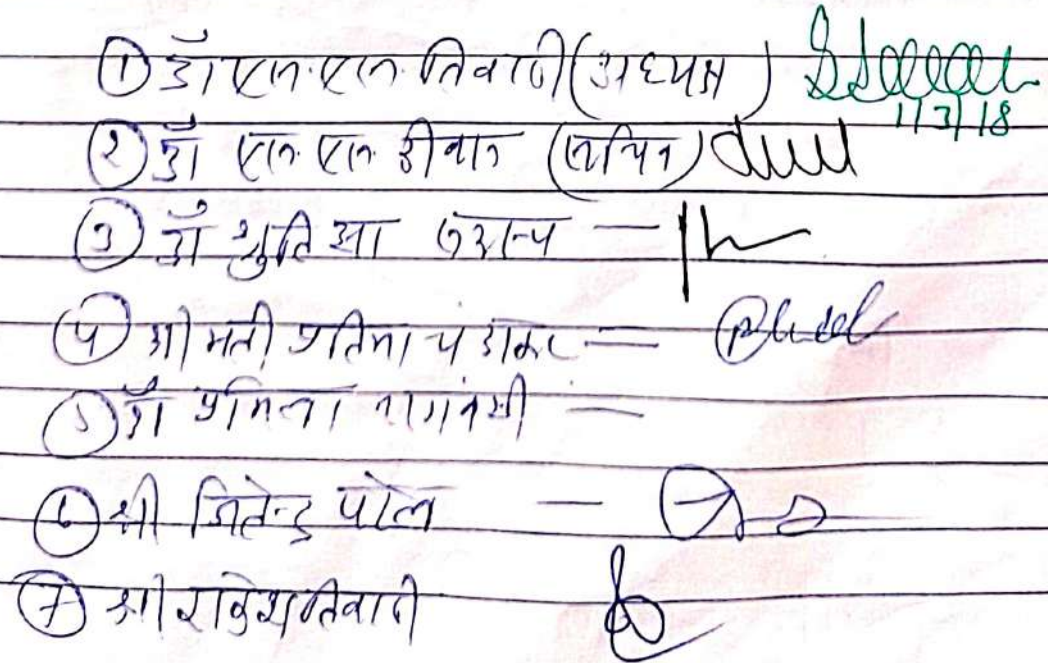 ① डॉ एन. एन. तिवारी (अध्यक्ष) 1/3/18
② डॉ एन. एन. दीवान (सचिव)
③ डॉ श्रुति झा —
④ श्रीमती प्रतिमा चंद्राकर —
⑤ डॉ प्रमिला नागवंशी —
⑥ श्री जितेन्द्र पोल —
⑦ श्री राकेश तिवारी